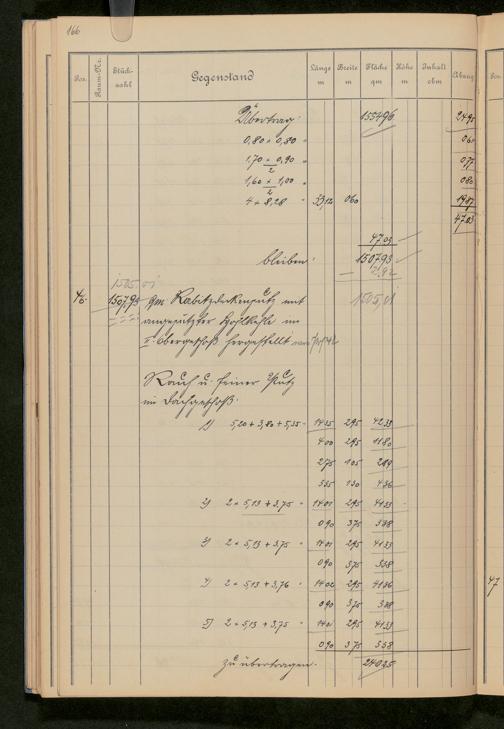 166
Pos. Raum-Nr. Stück-zahl Gegenstand Länge m Breite m Fläche qm Höhe m Inhalt cbm Abzug Pos.
Übertrag: 155496 2495
0,80 × 0,80 =
1,70 × 0,90 = 2 077
1,60 × 1,00 = 2 080
4 × 8,28 = 3312 060 1987
4703
4703
bleiben: 150793
292
1505,01
46. 150793 qm Rabitzdeckenputz mit 1505,01
angeputzter Hohlkehle im
I. Obergeschoß hergestellt
Rauh u. feiner Putz
im Dachgeschoß.
1) 5,20 + 3,80 + 5,35 = 1435 295 4233
400 295 1180
275 105 289
335 130 436
2) 2 × 5,13 + 3,75 = 1401 295 4133
090 375 338
3) 2 × 5,13 + 3,75 = 1401 295 4133
090 375 338
4) 2 × 5,13 + 3,76 = 1402 295 4136
090 375 338
47
5) 2 × 5,13 + 3,75 = 1401 295 4133
090 375 338
zu übertragen: